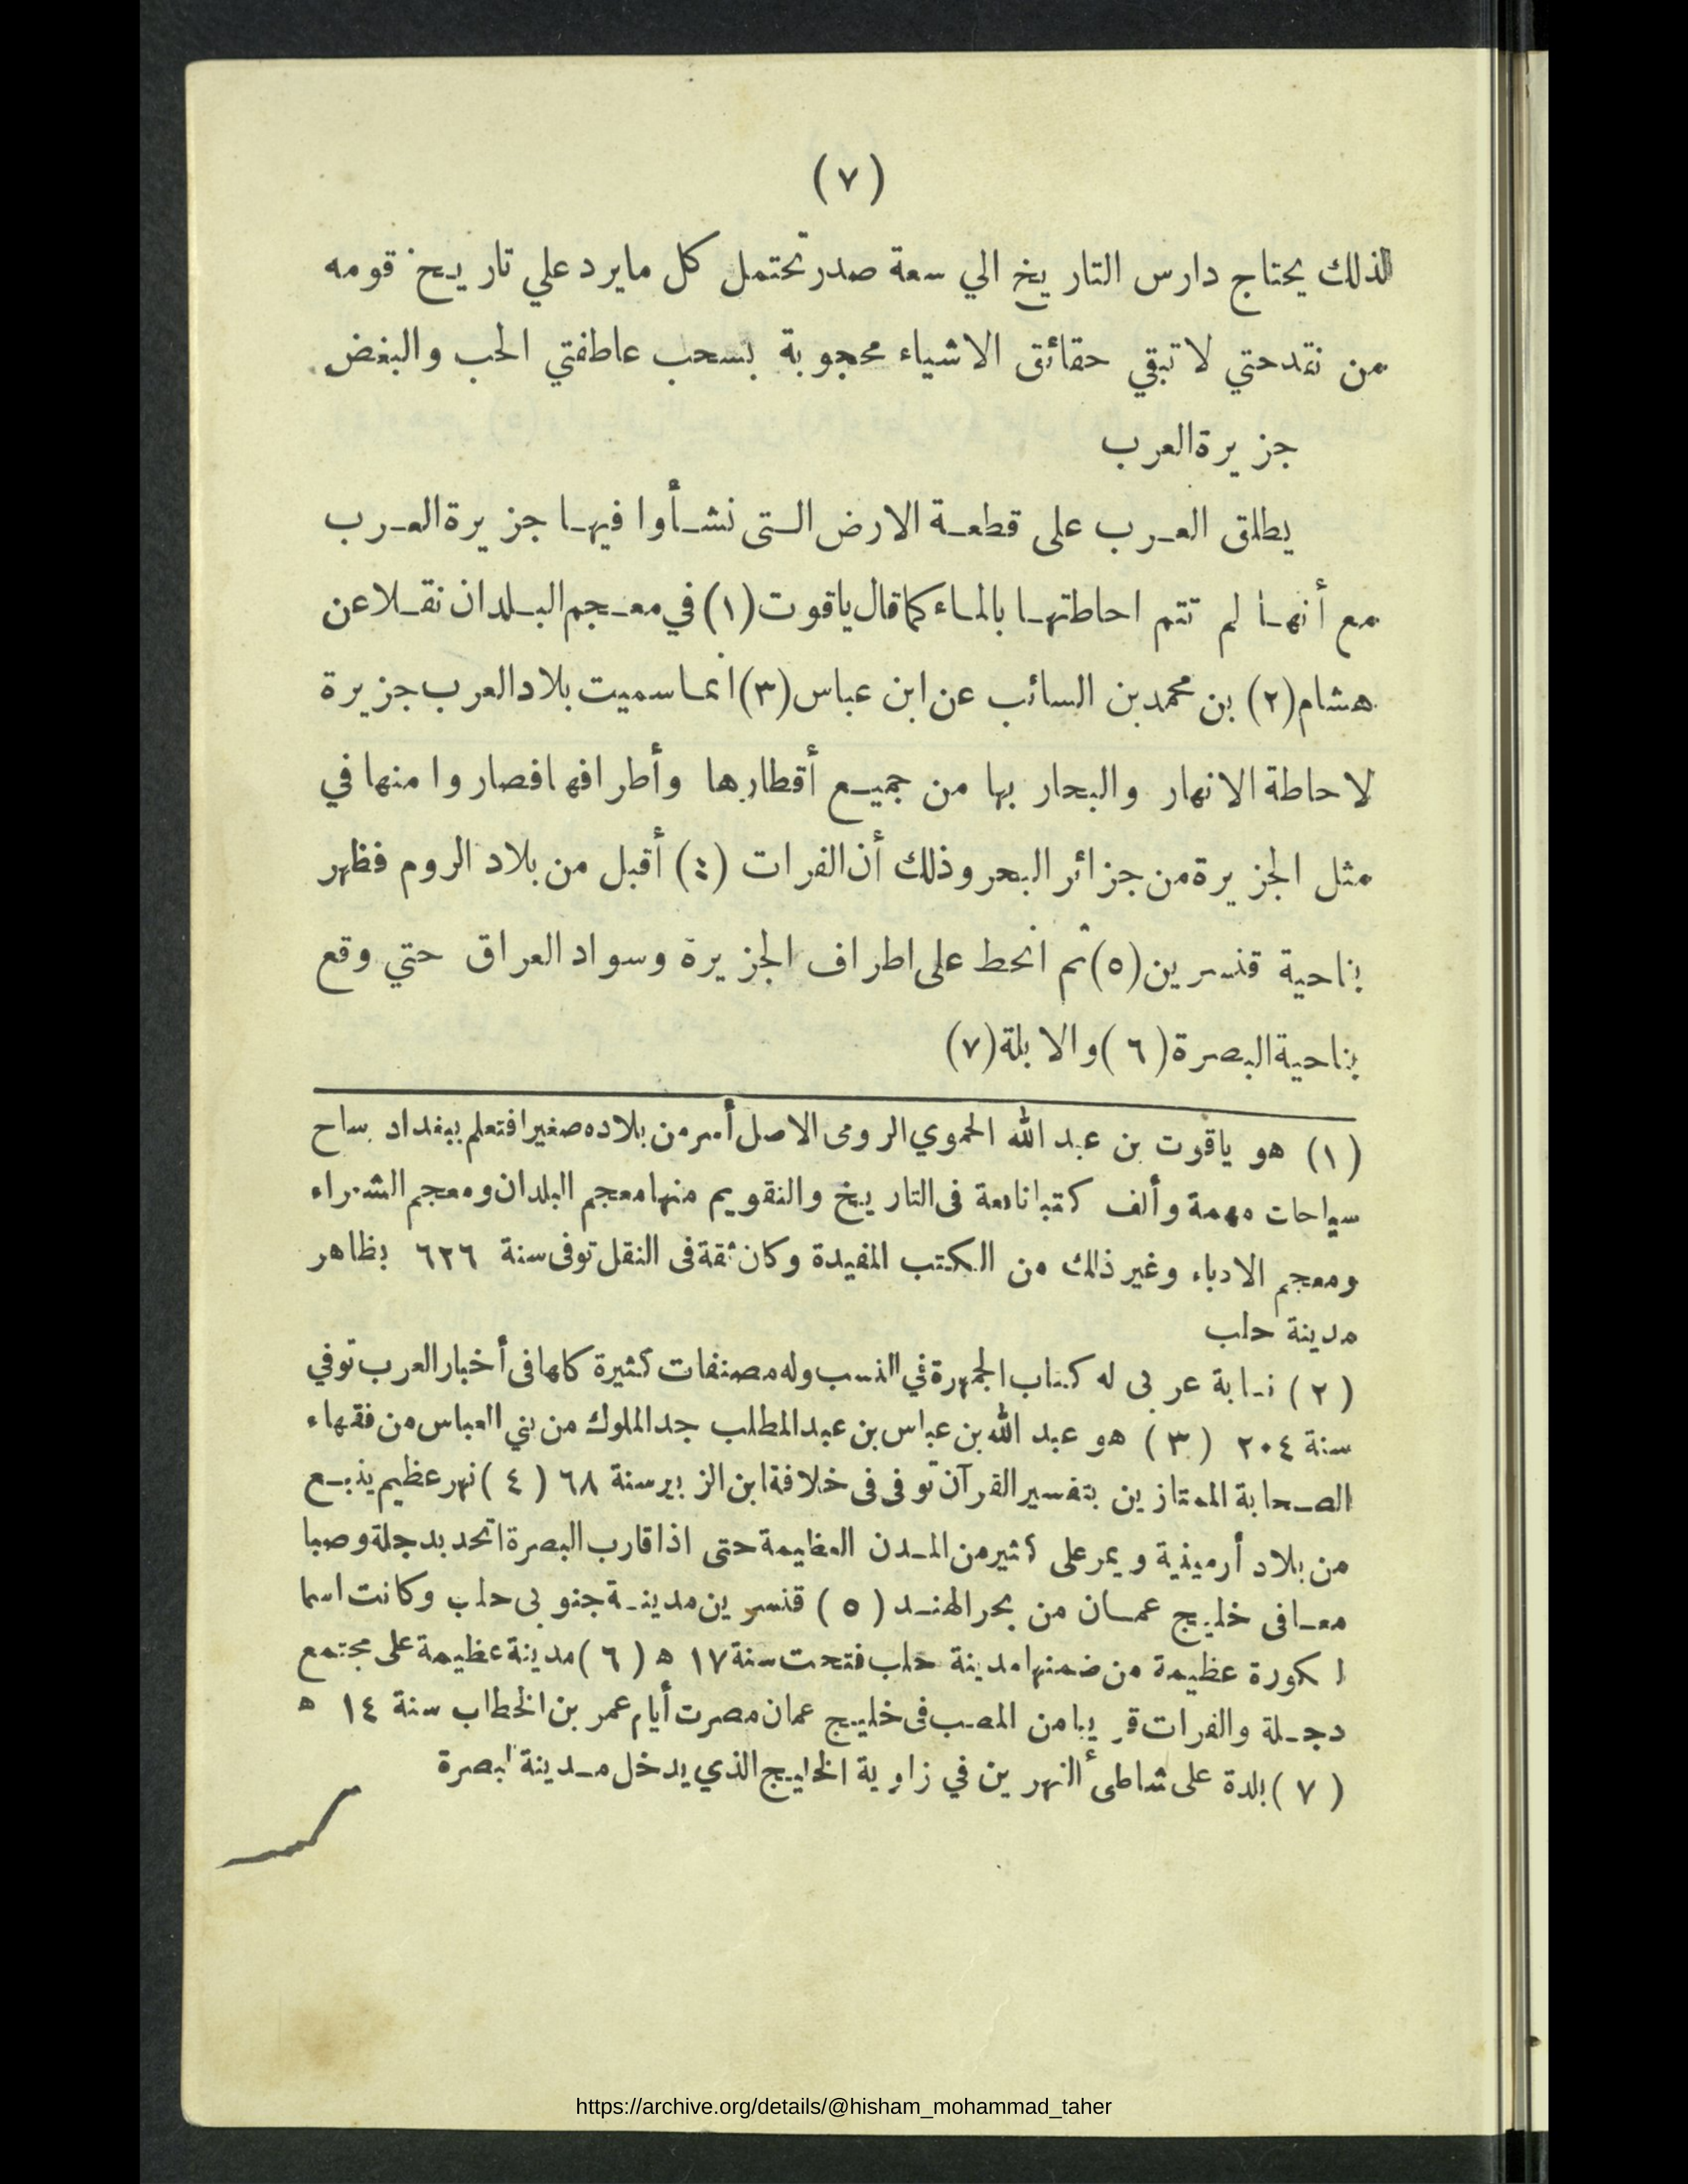 (٧)
لذلك يحتاج دارس التاريخ الي سعة صدر تحتمل كل مايرد علي تاريخ قومه
من نقد حتي لا تبقي حقائق الاشياء محجوبة بسحب عاطفتي الحب والبغض
جزيرة العرب
يطلق العرب على قطعة الارض التى نشأوا فيها جزيرة العرب
مع أنها لم تتم احاطتها بالماء كما قال ياقوت (١) في معجم البلدان نقلا عن
هشام (٢) بن محمد بن السائب عن ابن عباس (٣) انما سميت بلاد العرب جزيرة
لاحاطة الانهار والبحار بها من جميع أقطارها وأطرافها فصاروا منها في
مثل الجزيرة من جزائر البحر وذلك أن الفرات (٤) أقبل من بلاد الروم فظهر
بناحية قنسرين (٥) ثم انحط على اطراف الجزيرة وسواد العراق حتي وقع
بناحية البصرة (٦) والابلة (٧)
(١) هو ياقوت بن عبد الله الحموي الرومى الاصل أسر من بلاده صغيرا فتعلم ببغداد ساح
سياحات مهمة وألف كتبا نافعة فى التاريخ والتقويم منها معجم البلدان ومعجم الشعراء
ومعجم الادباء وغير ذلك من الكتب المفيدة وكان ثقة فى النقل توفى سنة ٦٢٦ بظاهر
مدينة حلب
(٢) نسابة عربى له كتاب الجمهرة في النسب وله مصنفات كثيرة كلها فى أخبار العرب توفي
سنة ٢٠٤ (٣) هو عبد الله بن عباس بن عبد المطلب جد الملوك من بني العباس من فقهاء
الصحابة الممتازين بتفسير القرآن توفى فى خلافة ابن الزبير سنة ٦٨ (٤) نهر عظيم ينبع
من بلاد أرمينية ويمر على كثير من المدن العظيمة حتى اذا قارب البصرة اتحد بدجلة وصبا
معا فى خليج عمان من بحر الهند (٥) قنسرين مدينة جنوبى حلب وكانت اسما
لكورة عظيمة من ضمنها مدينة حلب فتحت سنة ١٧ ه (٦) مدينة عظيمة على مجتمع
دجلة والفرات قريبا من المصب فى خليج عمان مصرت أيام عمر بن الخطاب سنة ١٤ ه
(٧) بلدة على شاطىء النهرين في زاوية الخليج الذي يدخل مدينة البصرة
https://archive.org/details/@hisham_mohammad_taher